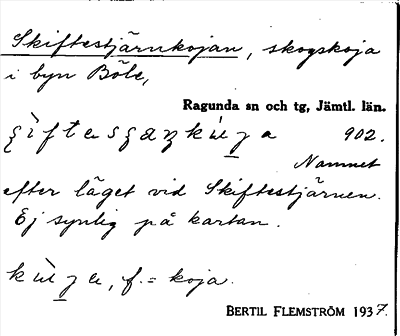 Skiftestjärnkojan, skogskoja
i byn Böle,
Ragunda sn och tg, Jämtl. län.
902.
Namnet
efter läget vid Skiftestjärnen.
Ej synlig på kartan.
f. = koja.
BERTIL FLEMSTRÖM 1937.